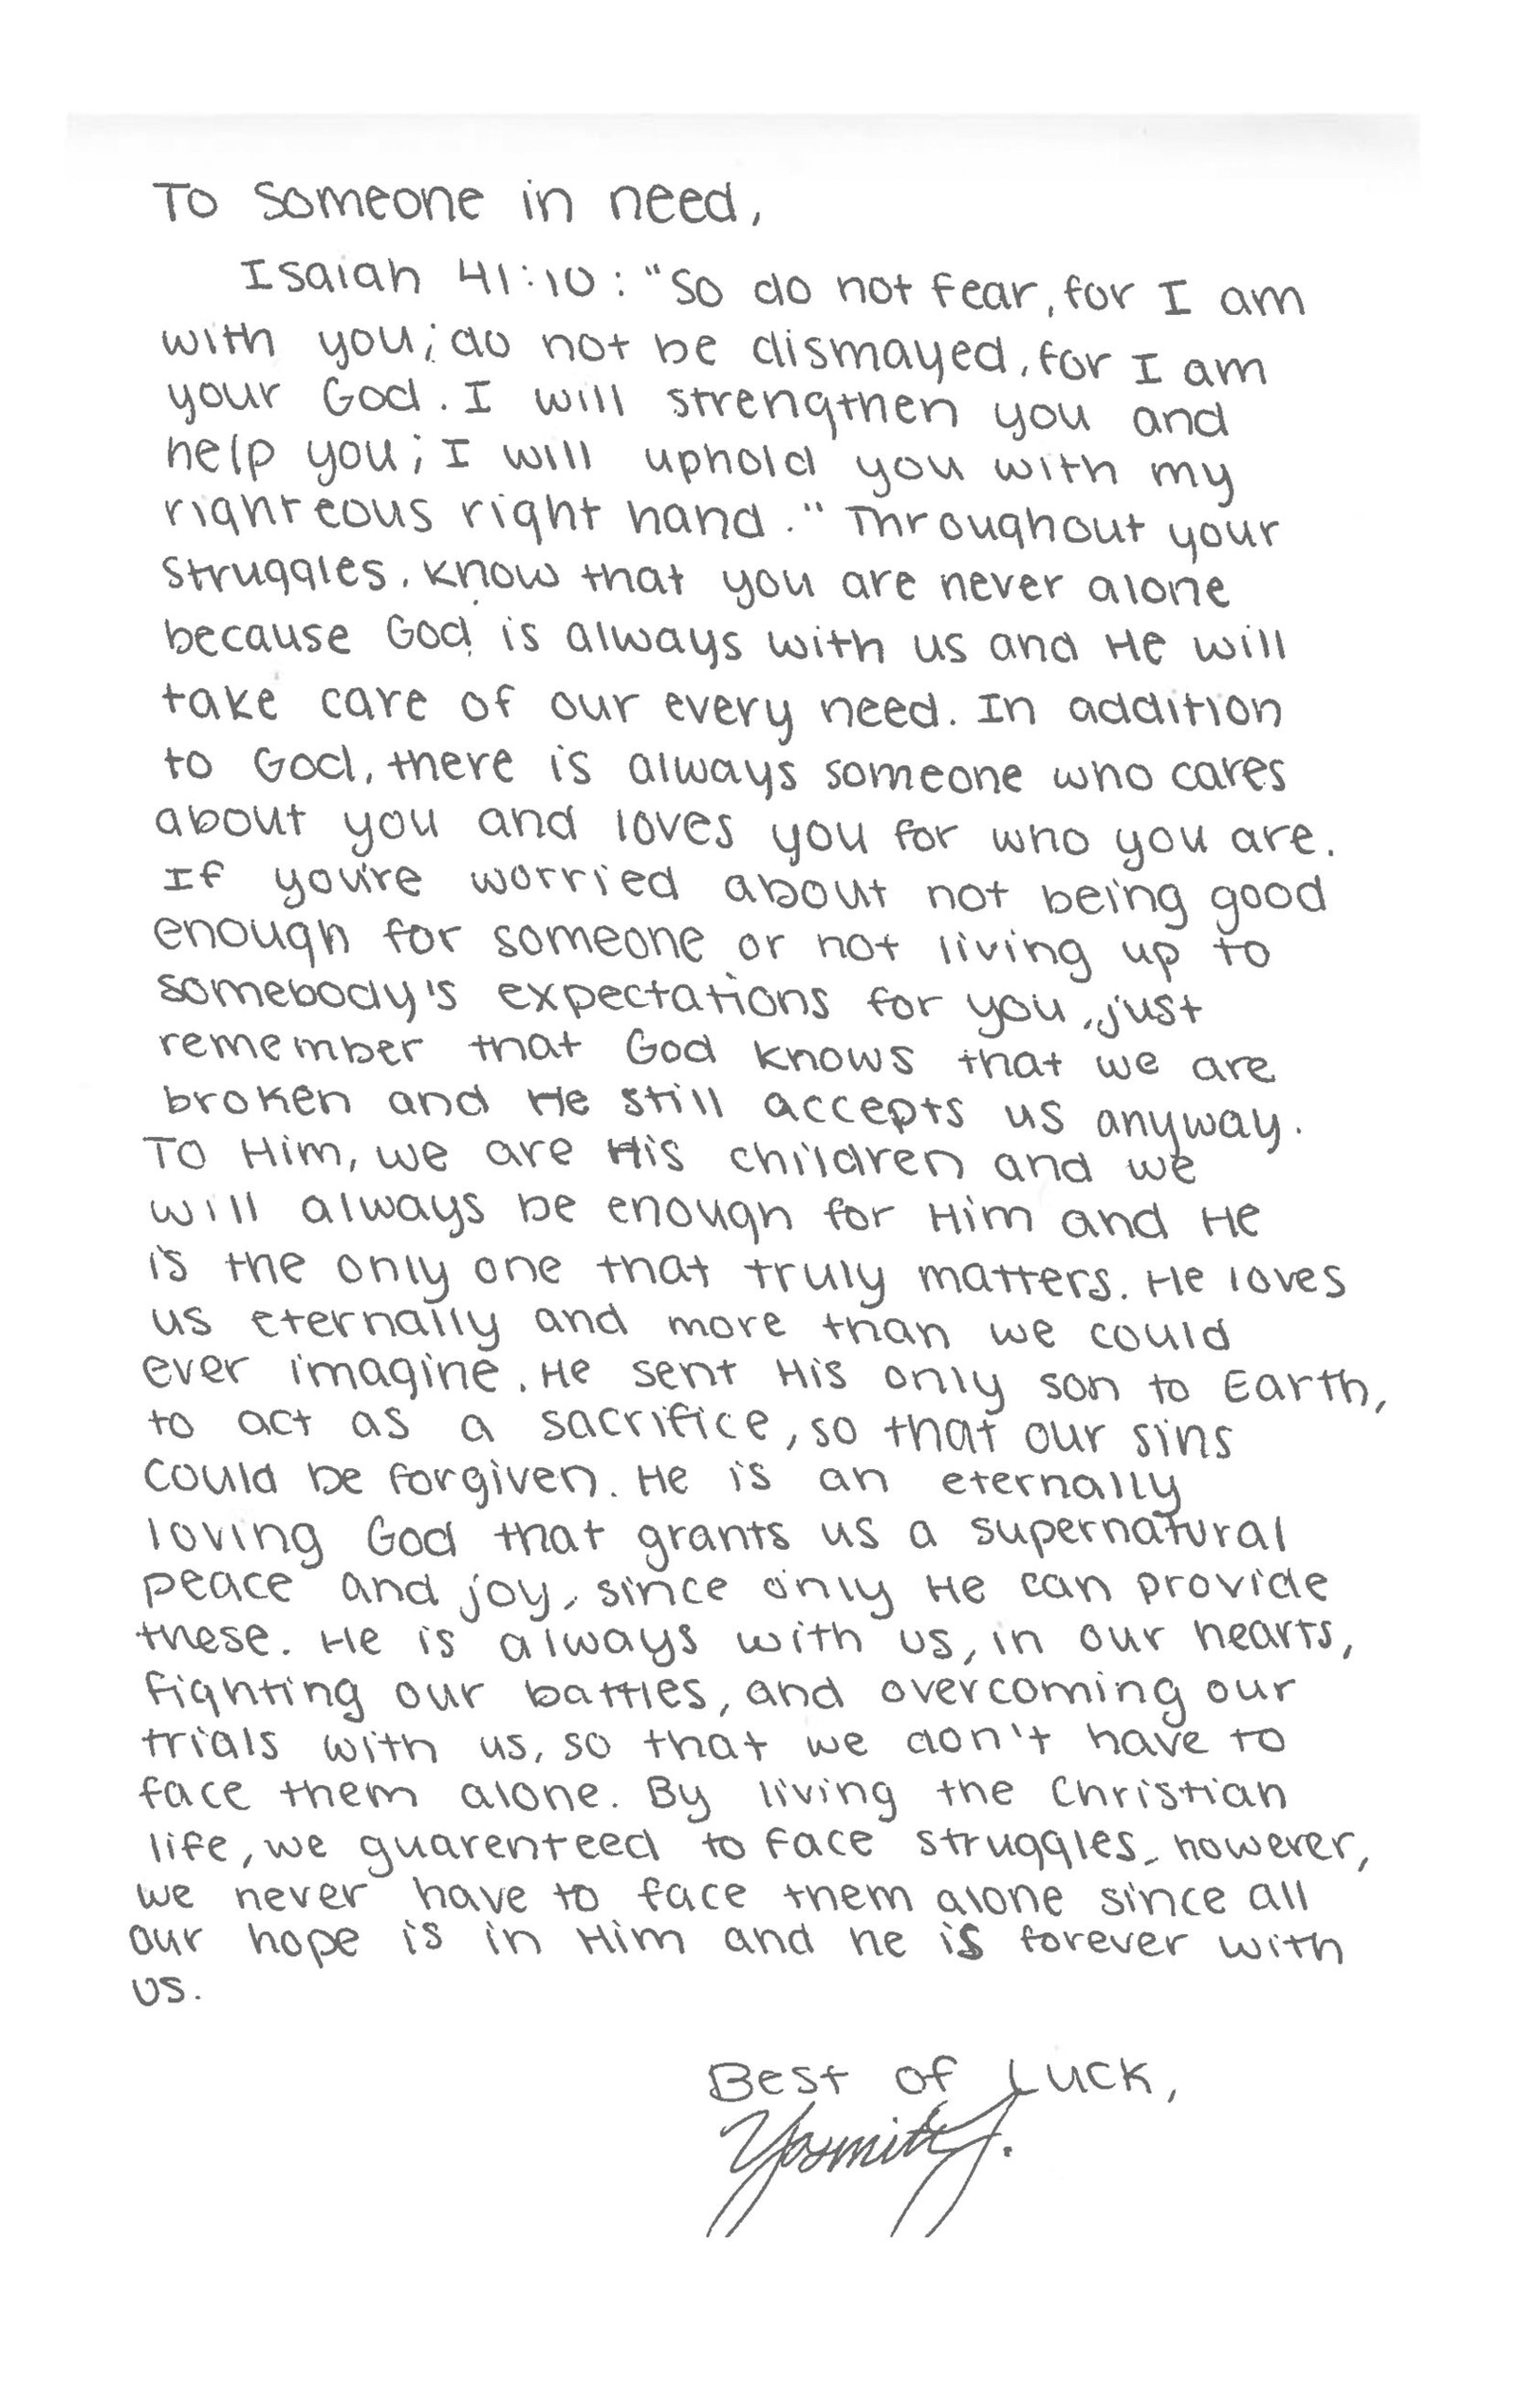 To someone in need,
Isaiah 41:10: "So do not fear, for I am
with you; do not be dismayed, for I am
your God. I will strengthen you and
help you; I will uphold you with my
righteous right hand." Throughout your
struggles, know that you are never alone
because God is always with us and He will
take care of our every need. In addition
to God, there is always someone who cares
about you and loves you for who you are.
If you're worried about not being good
enough for someone or not living up to
somebody's expectations for you, just
remember that God knows that we are
broken and He still accepts us anyway.
To Him, we are His children and we
will always be enough for Him and He
is the only one that truly matters. He loves
us eternally and more than we could
ever imagine. He sent His only son to Earth,
to act as a sacrifice, so that our sins
could be forgiven. He is an eternally
loving God that grants us a supernatural
peace and joy, since only He can provide
these. He is always with us, in our hearts,
fighting our battles, and overcoming our
trials with us, so that we don't have to
face them alone. By living the Christian
life, we guarenteed to face struggles, however,
we never have to face them alone since all
our hope is in Him and he is forever with
us.
Best of Luck,